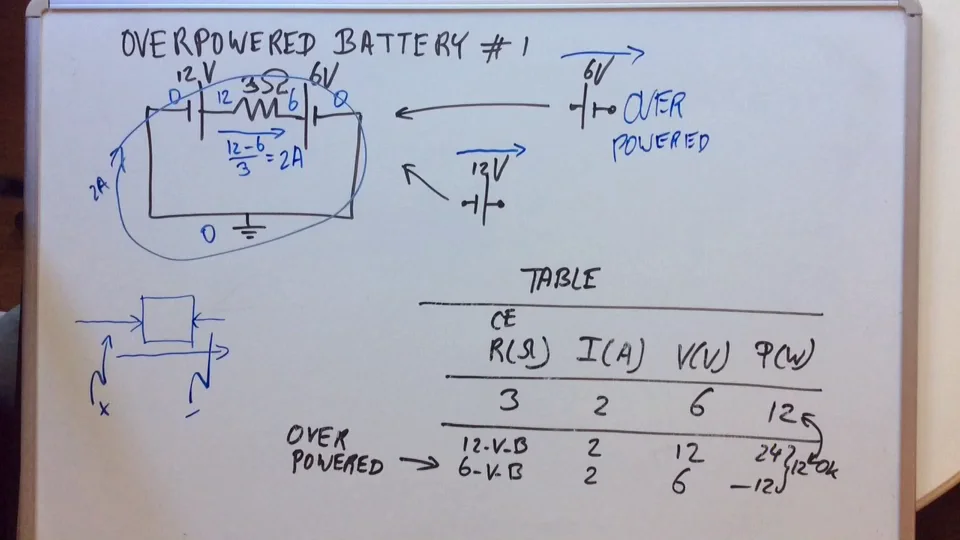 OVERPOWERED BATTERY # 1
12V 3Ω 6V
0 12 6 0
12-6
3 = 2A
2A
0
6V
OVER
POWERED
12V
TABLE
CE
R(Ω) I(A) V(V) P(W)
3 2 6 12
OVER
POWERED
12-V-B 2 12 24
6-V-B 2 6 -12
12 Ok